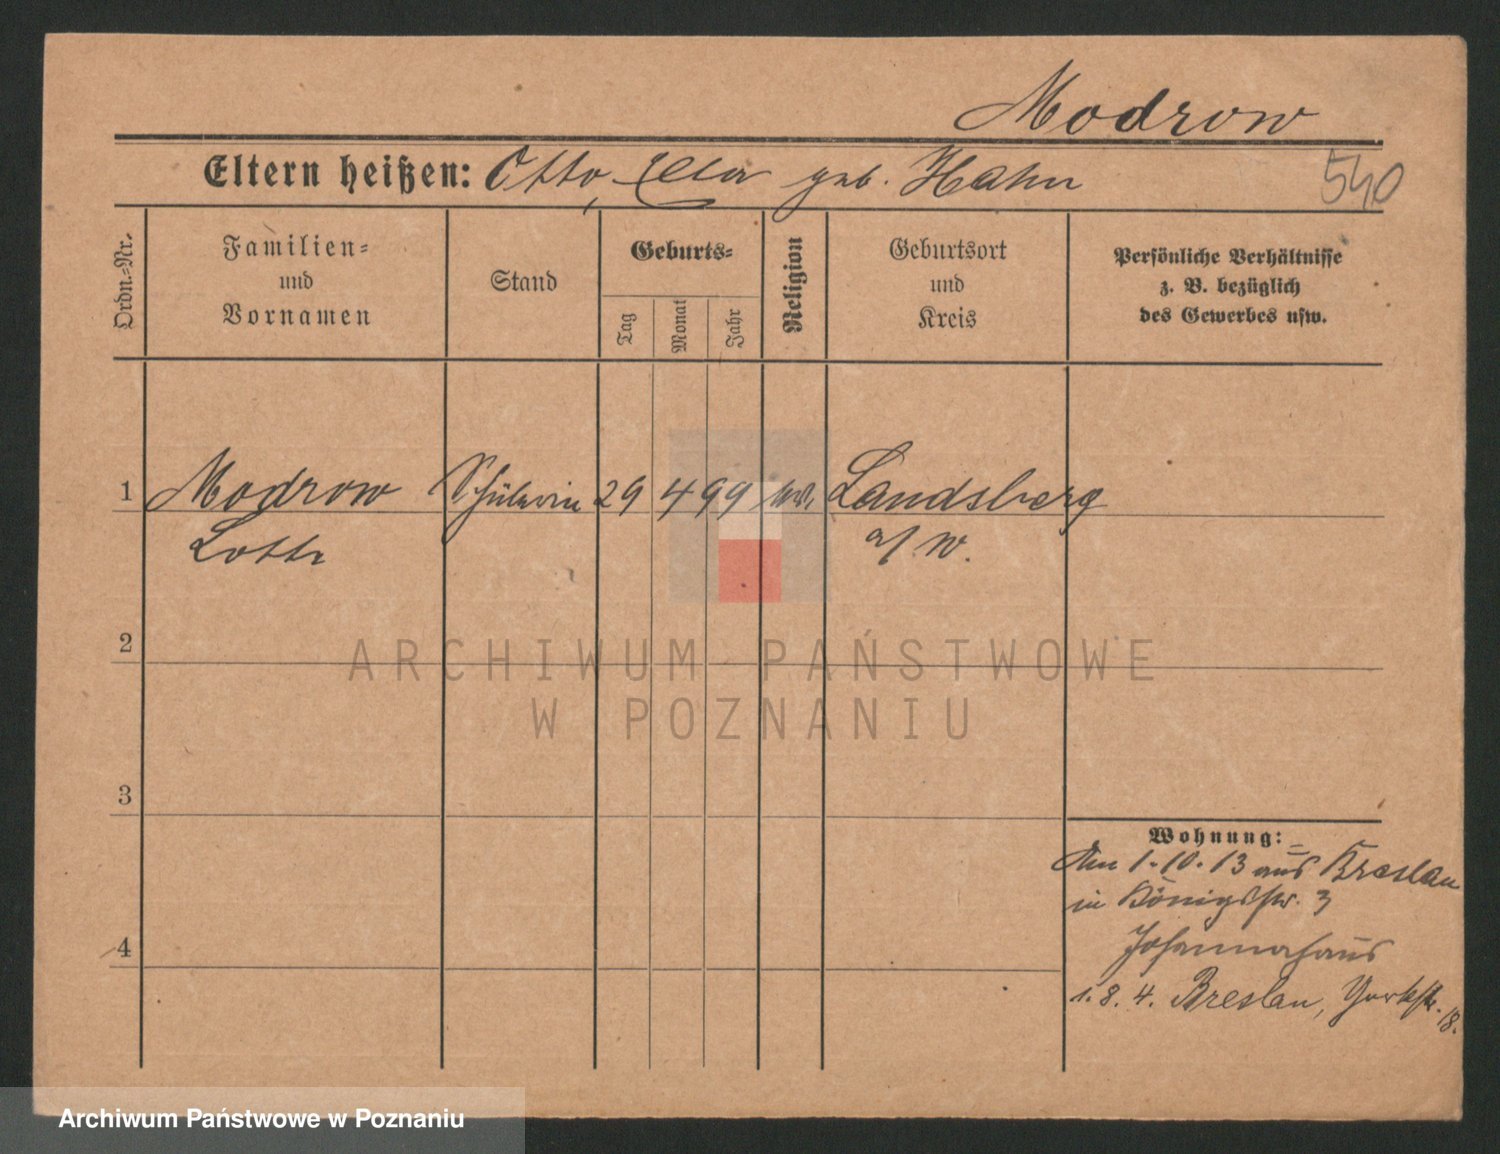 Modrow
Eltern heißen: Otto, Ella geb. Hahn
540
Ordn.=Nr.
Familien=
und
Vornamen
Stand
Geburts=
Tag
Monat
Jahr
Religion
Geburtsort
und
Kreis
Persönliche Verhältnisse
z. B. bezüglich
des Gewerbes usw.
1 Modrow Schülerin 29 4 99 Landsberg
Lotte a/W.
2
ARCHIWUM PAŃSTWOWE
W POZNANIU
3
Wohnung:
Am 1.10.13 aus Breslau
in Königsstr. 3
4
Johannahaus
1. 8. 4. Breslau, Yorkstr. 18.
Archiwum Państwowe w Poznaniu